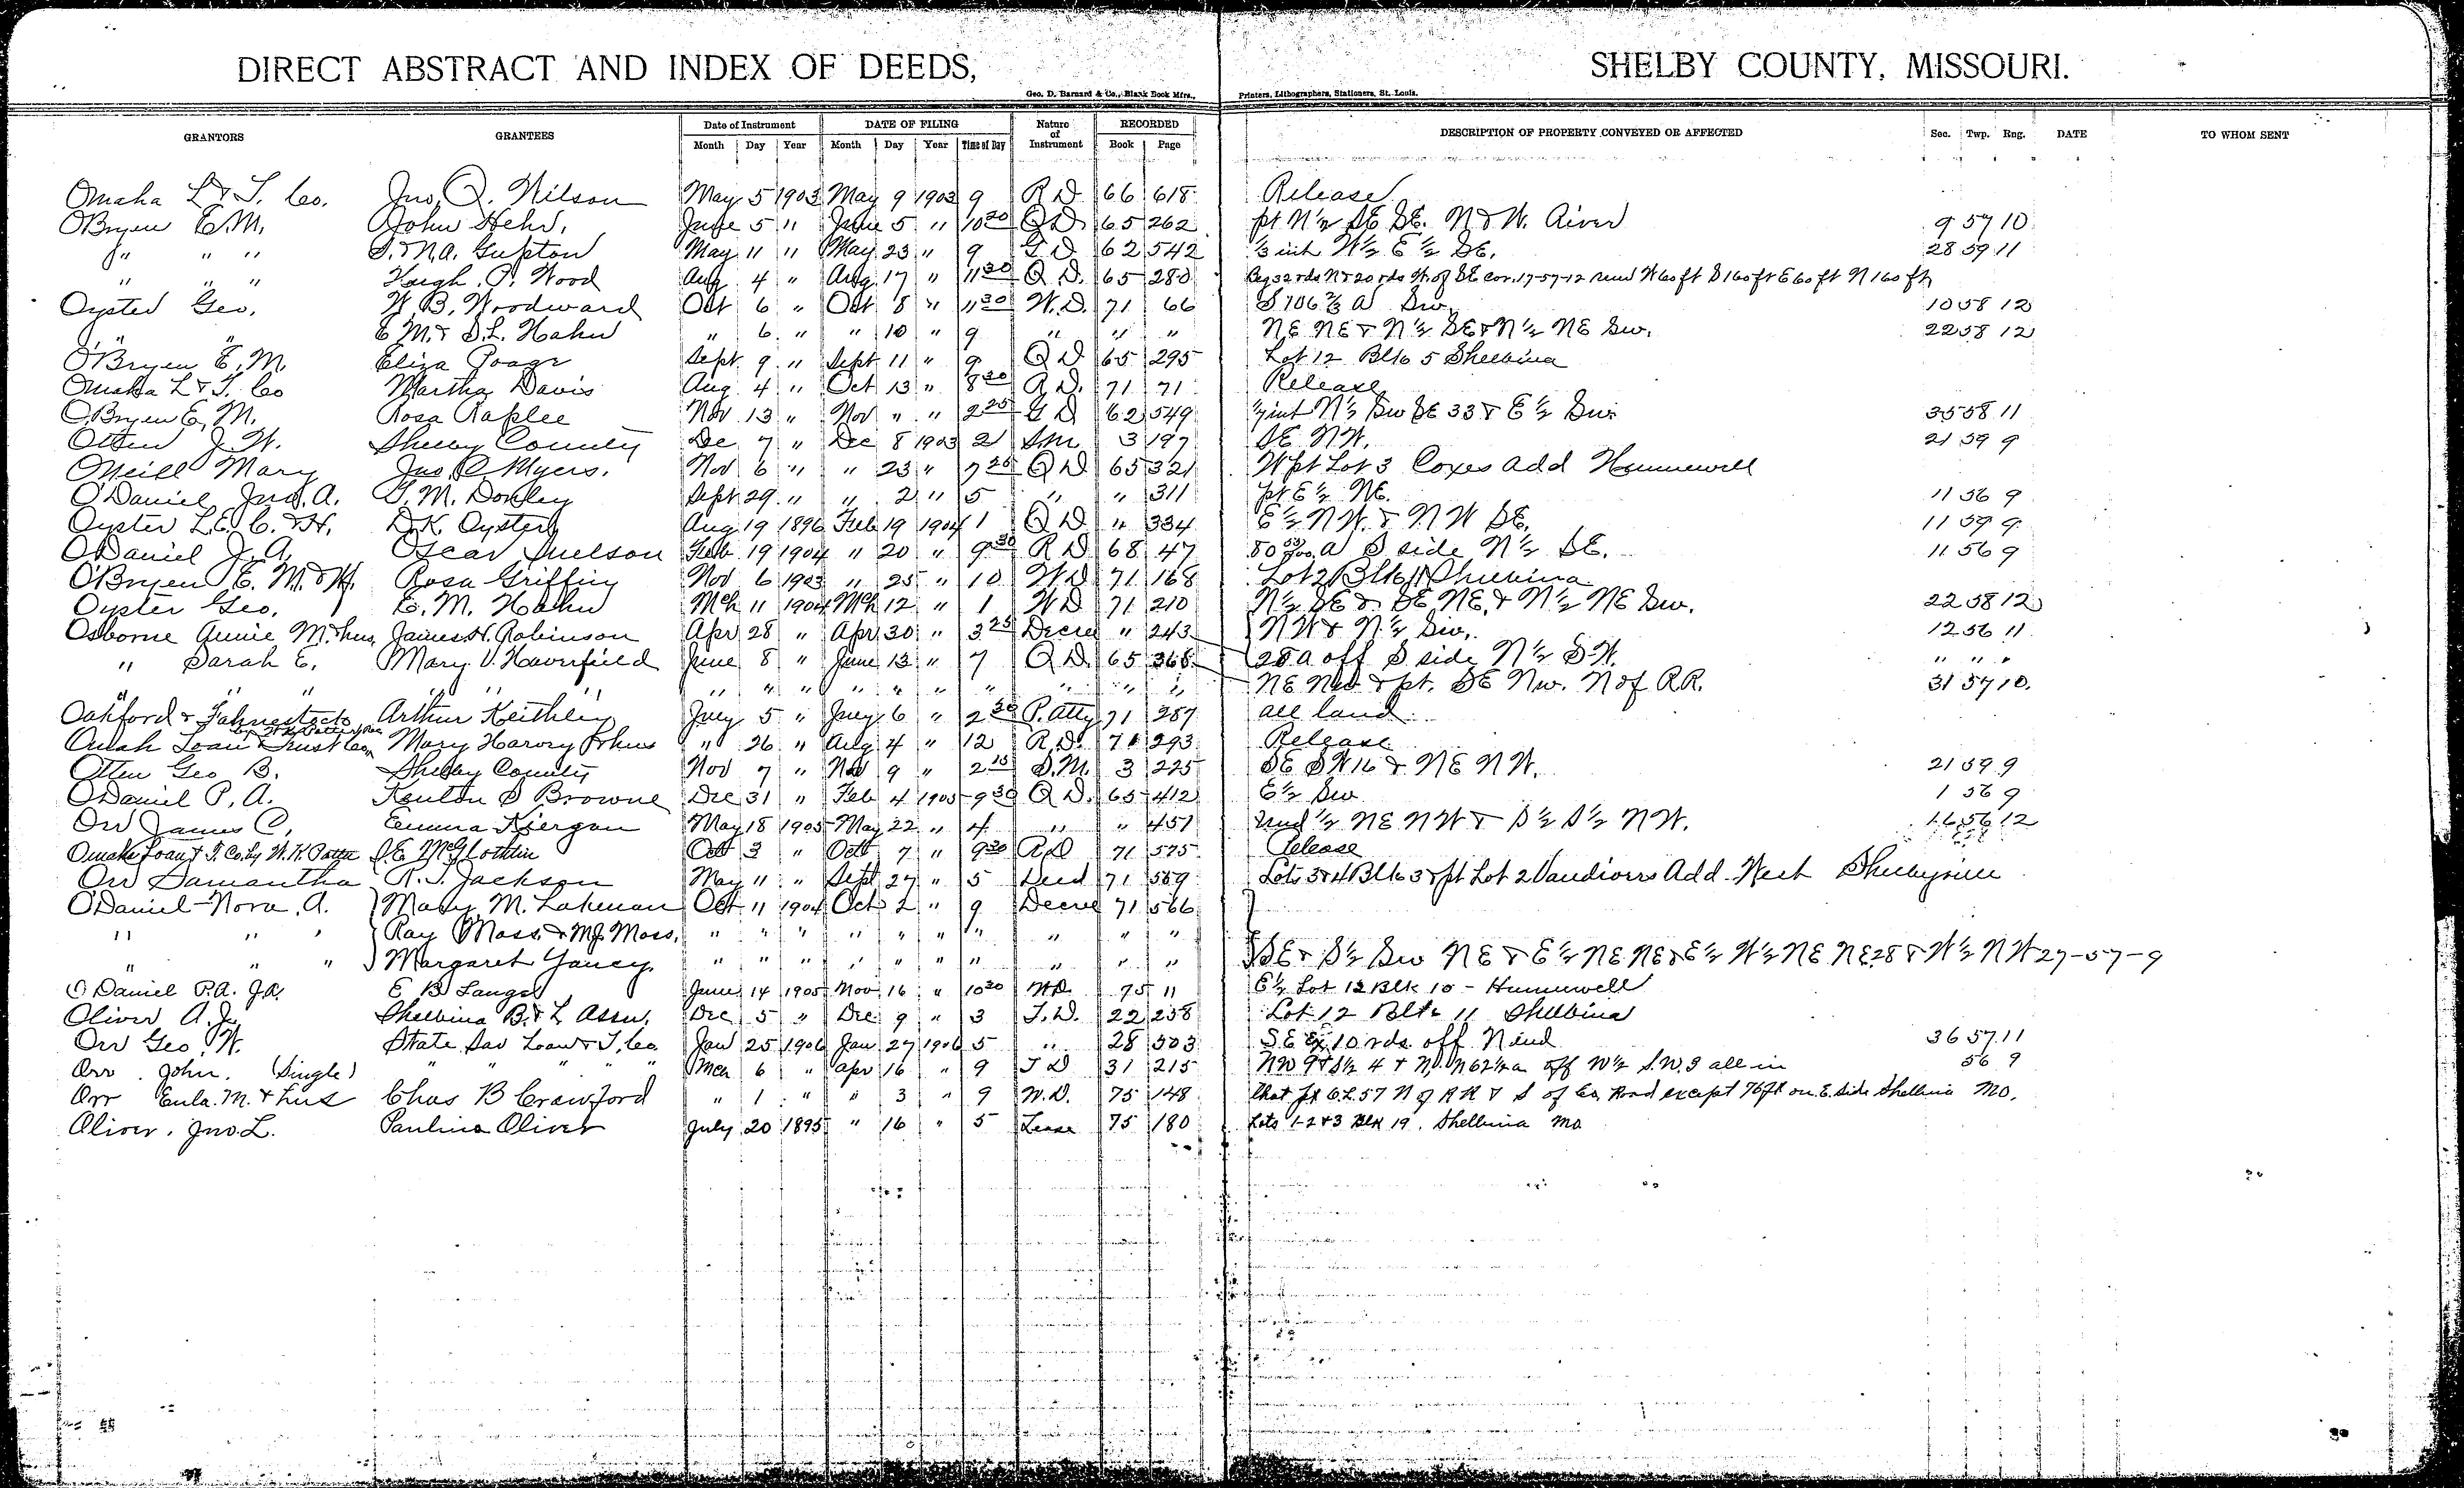 DIRECT ABSTRACT AND INDEX OF DEEDS, SHELBY COUNTY, MISSOURI.
Geo. D. Barnard & Co., Blank Book Mfrs., Printers, Lithographers, Stationers, St. Louis.
GRANTORS GRANTEES Date of Instrument DATE OF FILING Nature of Instrument RECORDED DESCRIPTION OF PROPERTY CONVEYED OR AFFECTED Sec. Twp. Rng. DATE TO WHOM SENT
Month Day Year Month Day Year Time of Day Book Page
Omaha L & T. Co. Jno. Q. Wilson May 5 1903 May 9 1903 9 R D 66 618 Release
OBryen E.M. John Hehr. June 5 " June 5 " 10 30 Q D. 65 262 pt N½ SE SE. N & W. River 9 57 10
" " " S. & N.A. Gupton May 11 " May 23 " 9 G D 62 542 ⅓ int W½ E½ SE. 28 59 11
" " " Hugh. P. Wood Aug 4 " Aug 17 " 11 30 Q D. 65 280 Beg 32 rds N & 20 rds W. of SE cor. 17-57-12 run W 60 ft S 160 ft E 60 ft N 160 ft
Oyster Geo. W. B. Woodward Oct 6 " Oct 8 " 11 30 W.D. 71 66 S 106⅔ A Sw. 10 58 12
" " E M. & S.L. Hahn " 6 " " 10 " 9 " " " NE NE & N½ SE & N½ NE Sw. 22 58 12
O'Bryen E. M. Eliza Poage Sept. 9 " Sept 11 " 9 Q D 65 295 Lot 12 Blk 5 Shelbina
Omaha L & T. Co Martha Davis Aug 4 " Oct 13 " 8 30 R D. 71 71 Release
OBryen E. M. Rosa Raplee Nov 13 " Nov " " 2 25 G D 62 549 ½ int N½ Sw SE 33 & E½ Sw. 35 58 11
Otten J. W. Shelby County De 7 " Dec 8 1903 2 S.M. 3 197 SE NW. 21 59 9
O'Neill Mary Jas. C Myers. Nov 6 " " 23 " 7 25 Q D 65 321 W pt Lot 3 Coxes Add Hunnewell
O'Daniel Jno. A. T. M. Donley Sept. 29 " " 2 " 5 " " 311 pt E½ NE. 11 56 9
Oyster L.E. C. & H. D.K. Oyster Aug 19 1896 Feb 19 1904 1 Q D " 334 E½ NW. & NW SE. 11 59 9
O'Daniel J. A. Oscar Snelson Feb 19 1904 " 20 " 9 30 R D 68 47 80 a S side N½ SE. 11 56 9
O'Bryen E. M. & H. Rosa Griffin Nov 6 1903 " 25 " 10 W D 71 168 Lot 2 Blk 11 Shelbina
Oyster Geo. E. M. Hahn Mch 11 1904 Mch 12 " 1 W D 71 210 N½ SE & SE NE, & N½ NE Sw. 22 58 12
Osborne Annie M. & hus. James H. Robinson Apr 28 " Apr 30 " 3 25 Decree " 243 NW & N½ Sw. 12 56 11
" Sarah E. Mary V. Haverfield June 8 " June 13 " 7 Q D. 65 368 28 a off S side N½ SW. " " "
" " " " " " " " " " " " " " " " NE Nw & pt. SE Nw. N of RR. 31 57 10.
Oakford & Fahnestock Arthur Keithley July 5 " July 6 " 2 30 P. Atty 71 287 All land
Omah Loan & Trust Co Mary Harvey & hus " 26 " Aug 4 " 12 R. D. 71 293 Release
Otten Geo B. Shelby County Nov 7 " Nov 9 " 2 15 S.M. 3 225 SE SW 16 & NE NW. 21 59 9
O'Daniel P. A. Kenton S Browne Dec 31 " Feb 4 1905 9 30 Q D. 65 412 E½ Sw 1 56 9
Orr James C. Emma Kiergan May 18 1905 May 22 " 4 " " 451 Und ½ NE NW & S½ S½ NW. 16 56 12
Omaha Loan & T. Co. by W. K. Potter J.E. McGlothlin Oct 3 " Oct 7 " 9 30 R D 71 575 Release
Orr Samantha R. J. Jackson May 11 " Sept 27 " 5 Deed 71 559 Lots 3 & 4 Blk 3 & pt Lot 2 Vandivers Add. West Shelbyville
O'Daniel Nora. A. Mary M. Lakeman Oct 11 1904 Oct 2 " 9 Decree 71 566
" " " Ray Moss. & M.J. Moss. " " " " " " " " " "
" " " Margaret Yancy. " " " " " " " " " " SE & S½ Sw NE & E½ NE NE & E½ W½ NE NE 28 & W½ NW 27-57-9
O Daniel P.A. J.A. E B Langel June 14 1905 Nov 16 " 10 30 W.D. 75 11 E½ Lot 12 Blk 10 - Hunnewell
Oliver A. J. Shelbina B. & L Assn. Dec 5 " Dec 9 " 3 T.D. 22 238 Lot 12 Blk 11 Shelbina
Orr Geo. W. State Sav Loan & T. Co. Jan 25 1906 Jan 27 1906 5 " 28 503 SE Ex 10 rds. off N end 36 57 11
Orr. John. (Single) " " " " Mch 6 " Apr 16 " 9 T D 31 215 NW 9 & S½ 4 & N. N 62½ a off W½ S.W. 3 all in 56 9
Orr Eula. M. & hus Chas B Crawford " 1 " " 3 " 9 W.D. 75 148 that pt O.L 57 N of RR & S of Co. Road except 76 ft on E. side Shelbina Mo.
Oliver. Jno. L. Paulina Oliver July 20 1895 " 16 " 5 Lease 75 180 Lots 1-2 & 3 Blk 19. Shelbina Mo